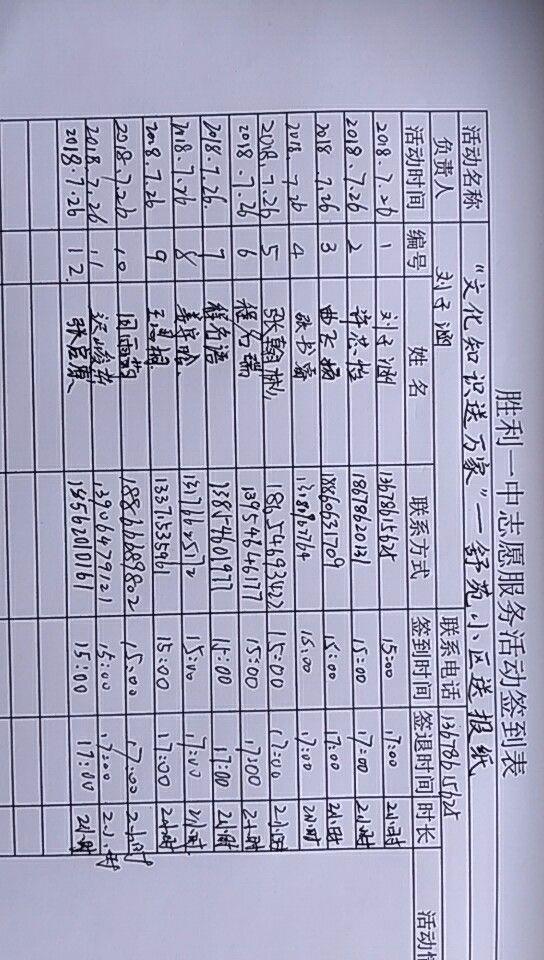 胜利一中志愿服务活动签到表
活动名称 "文化知识送万家"一舒苑小区送报纸
负责人 刘子涵 联系电话 13678615625
活动时间 编号 姓名 联系方式 签到时间 签退时间 时长 活动
2018.7.26 1 刘子涵 13678615625 15:00 17:00 2小时
2018.7.26 2 18678620131 15:00 17:00 2小时
2018.7.26 3 18860631709 15:00 17:00 2小时
2018.7.26 4 15:00 17:00 2小时
2018.7.26 5 张翰彬 18654693422 15:00 17:00 2小时
2018.7.26 6 程名瑞 13954646177 15:00 17:00 2小时
2018.7.26. 7 程名语 15:00 17:00 2小时
2018.7.26 8 15:00 17:00 2小时
2018.7.26 9 13375435961 15:00 17:00 2小时
2018.7.26 10 18866689802 15:00 17:00 2小时
2018.7.26 11 13906479121 15:00 17:00 2小时
2018.7.26 12 15:00 17:00 2小时